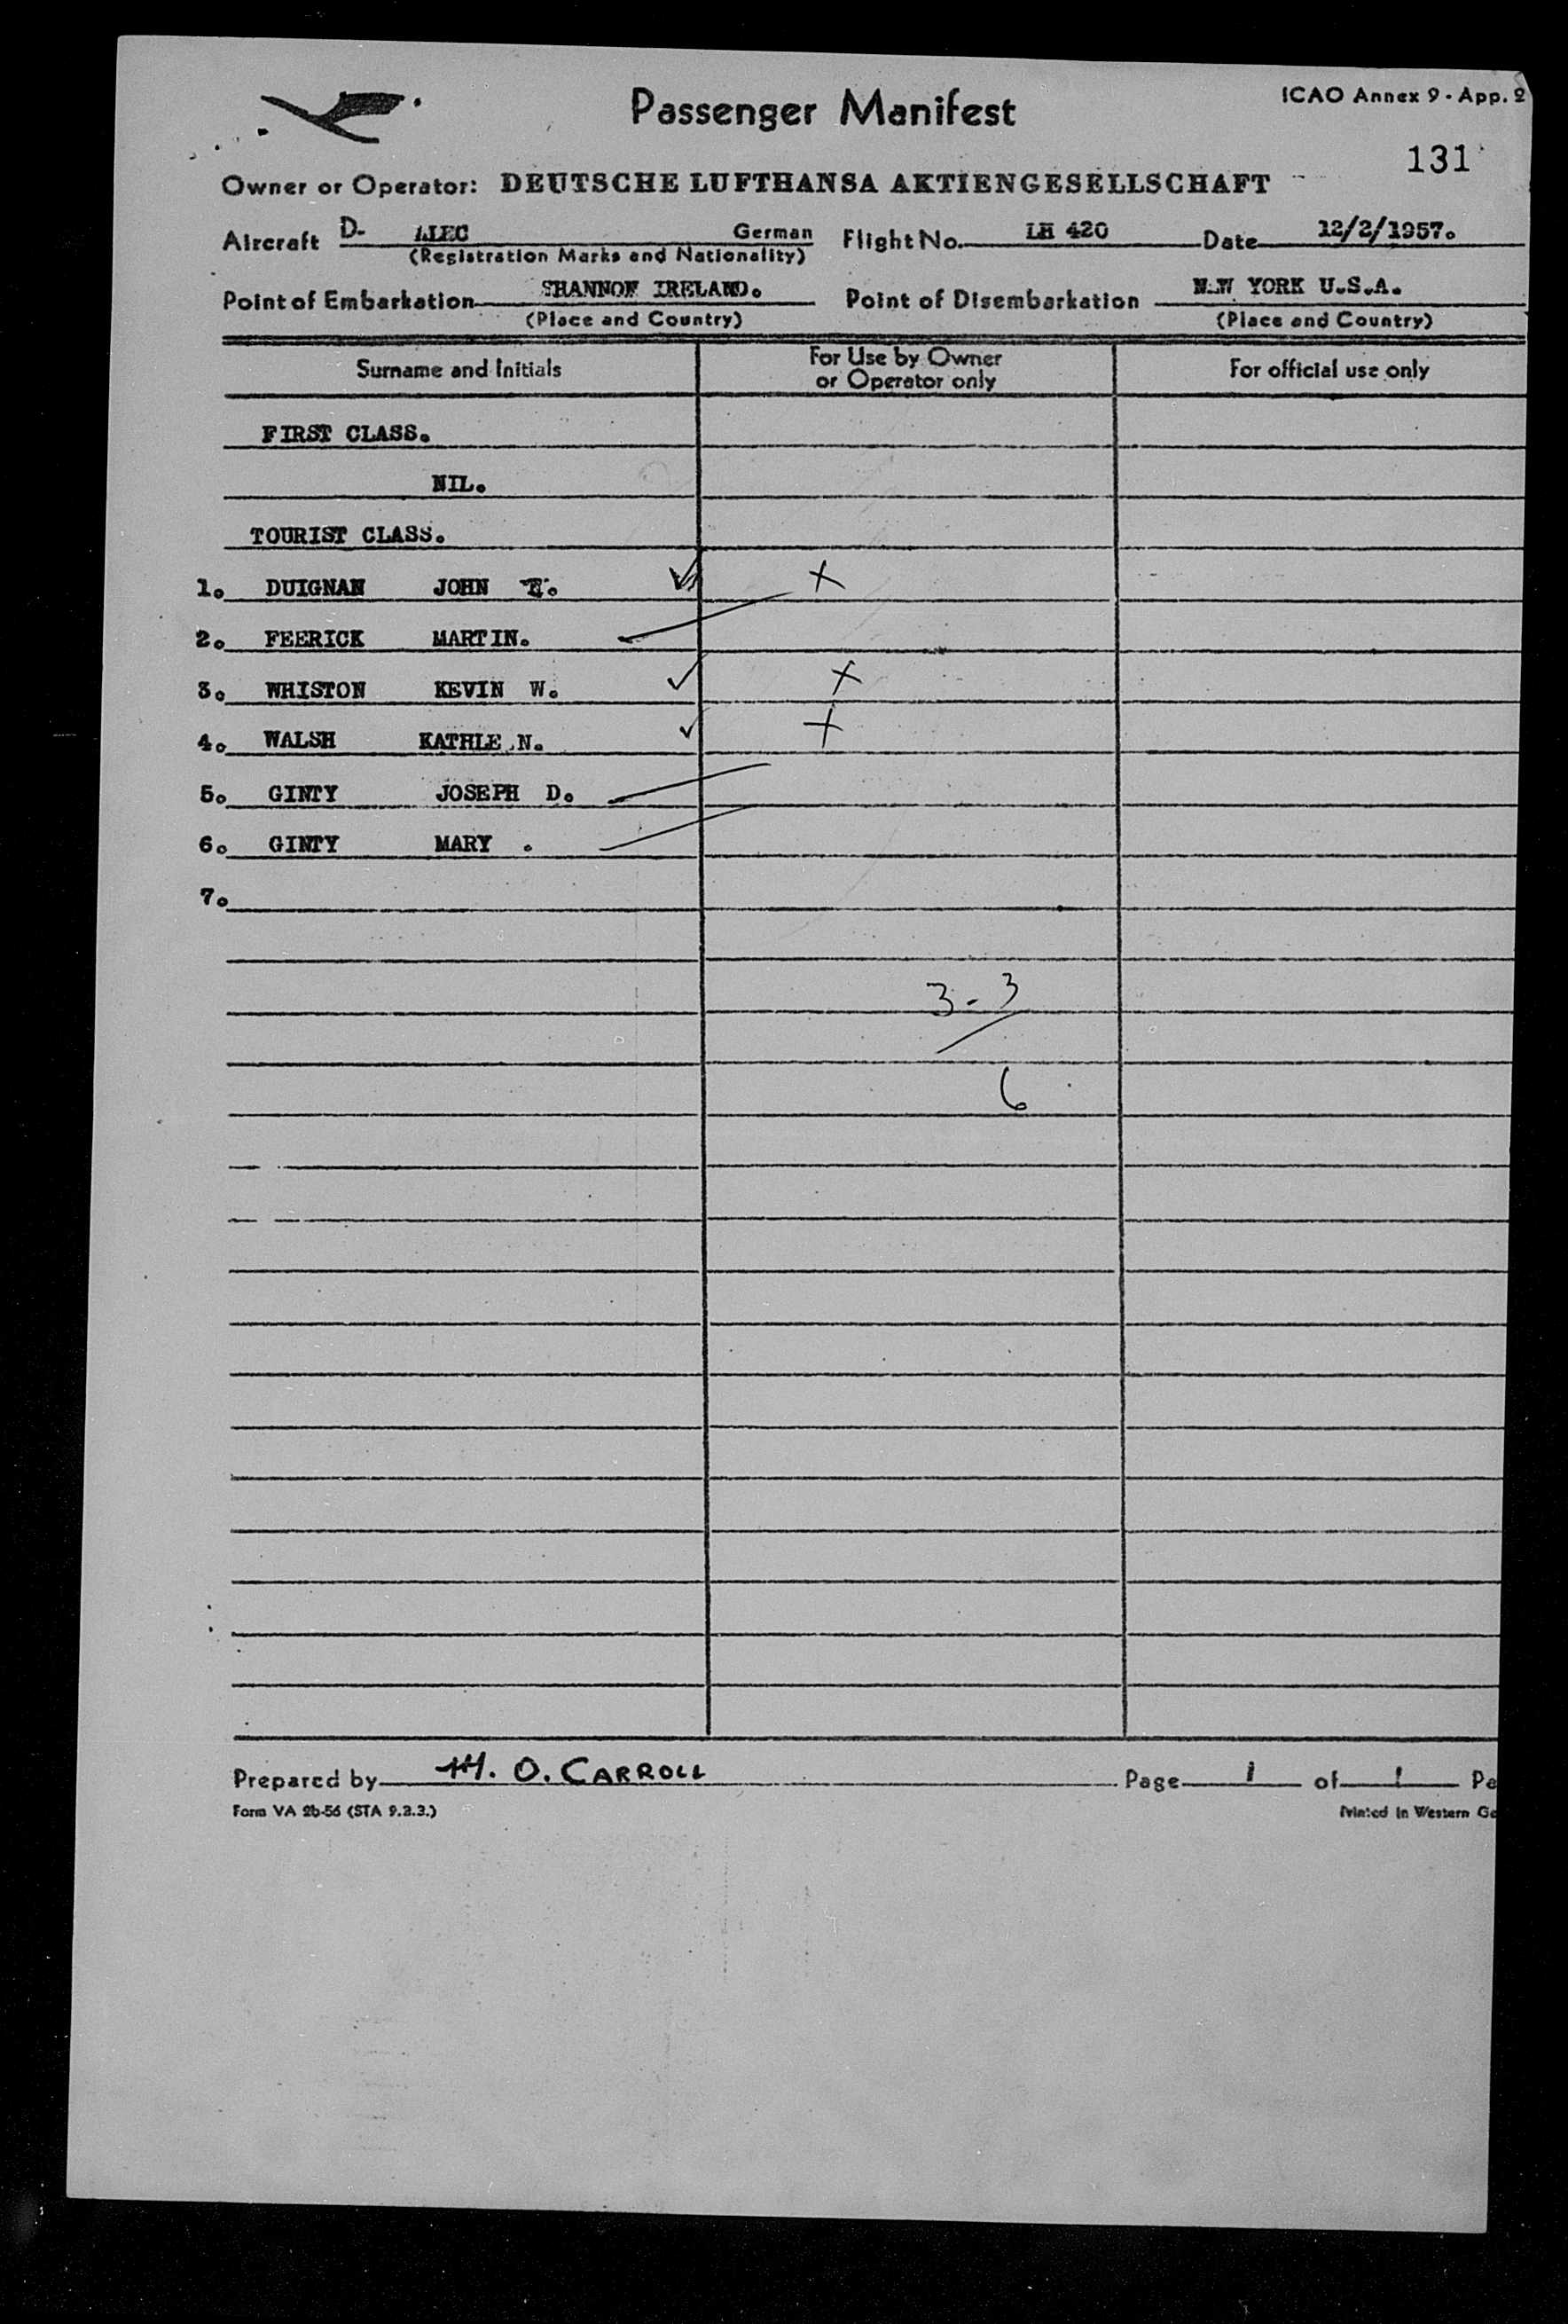 Passenger Manifest
ICAO Annex 9 - App. 2
131
Owner or Operator: DEUTSCHE LUFTHANSA AKTIENGESELLSCHAFT
Aircraft D- ALEC German Flight No. LH 420 Date 12/2/1957.
(Registration Marks and Nationality)
Point of Embarkation SHANNON IRELAND. Point of Disembarkation N.W YORK U.S.A.
(Place and Country) (Place and Country)
Surname and Initials For Use by Owner or Operator only For official use only
FIRST CLASS.
NIL.
TOURIST CLASS.
1. DUIGNAN JOHN E. X
2. FEERICK MARTIN.
3. WHISTON KEVIN W. X
4. WALSH KATHLE N. X
5. GINTY JOSEPH D.
6. GINTY MARY .
7.
3 - 3
/
6
Prepared by M. O. CARROLL Page 1 of 1 Pa
Form VA 2b-56 (STA 9.2.3.) Printed in Western Ge